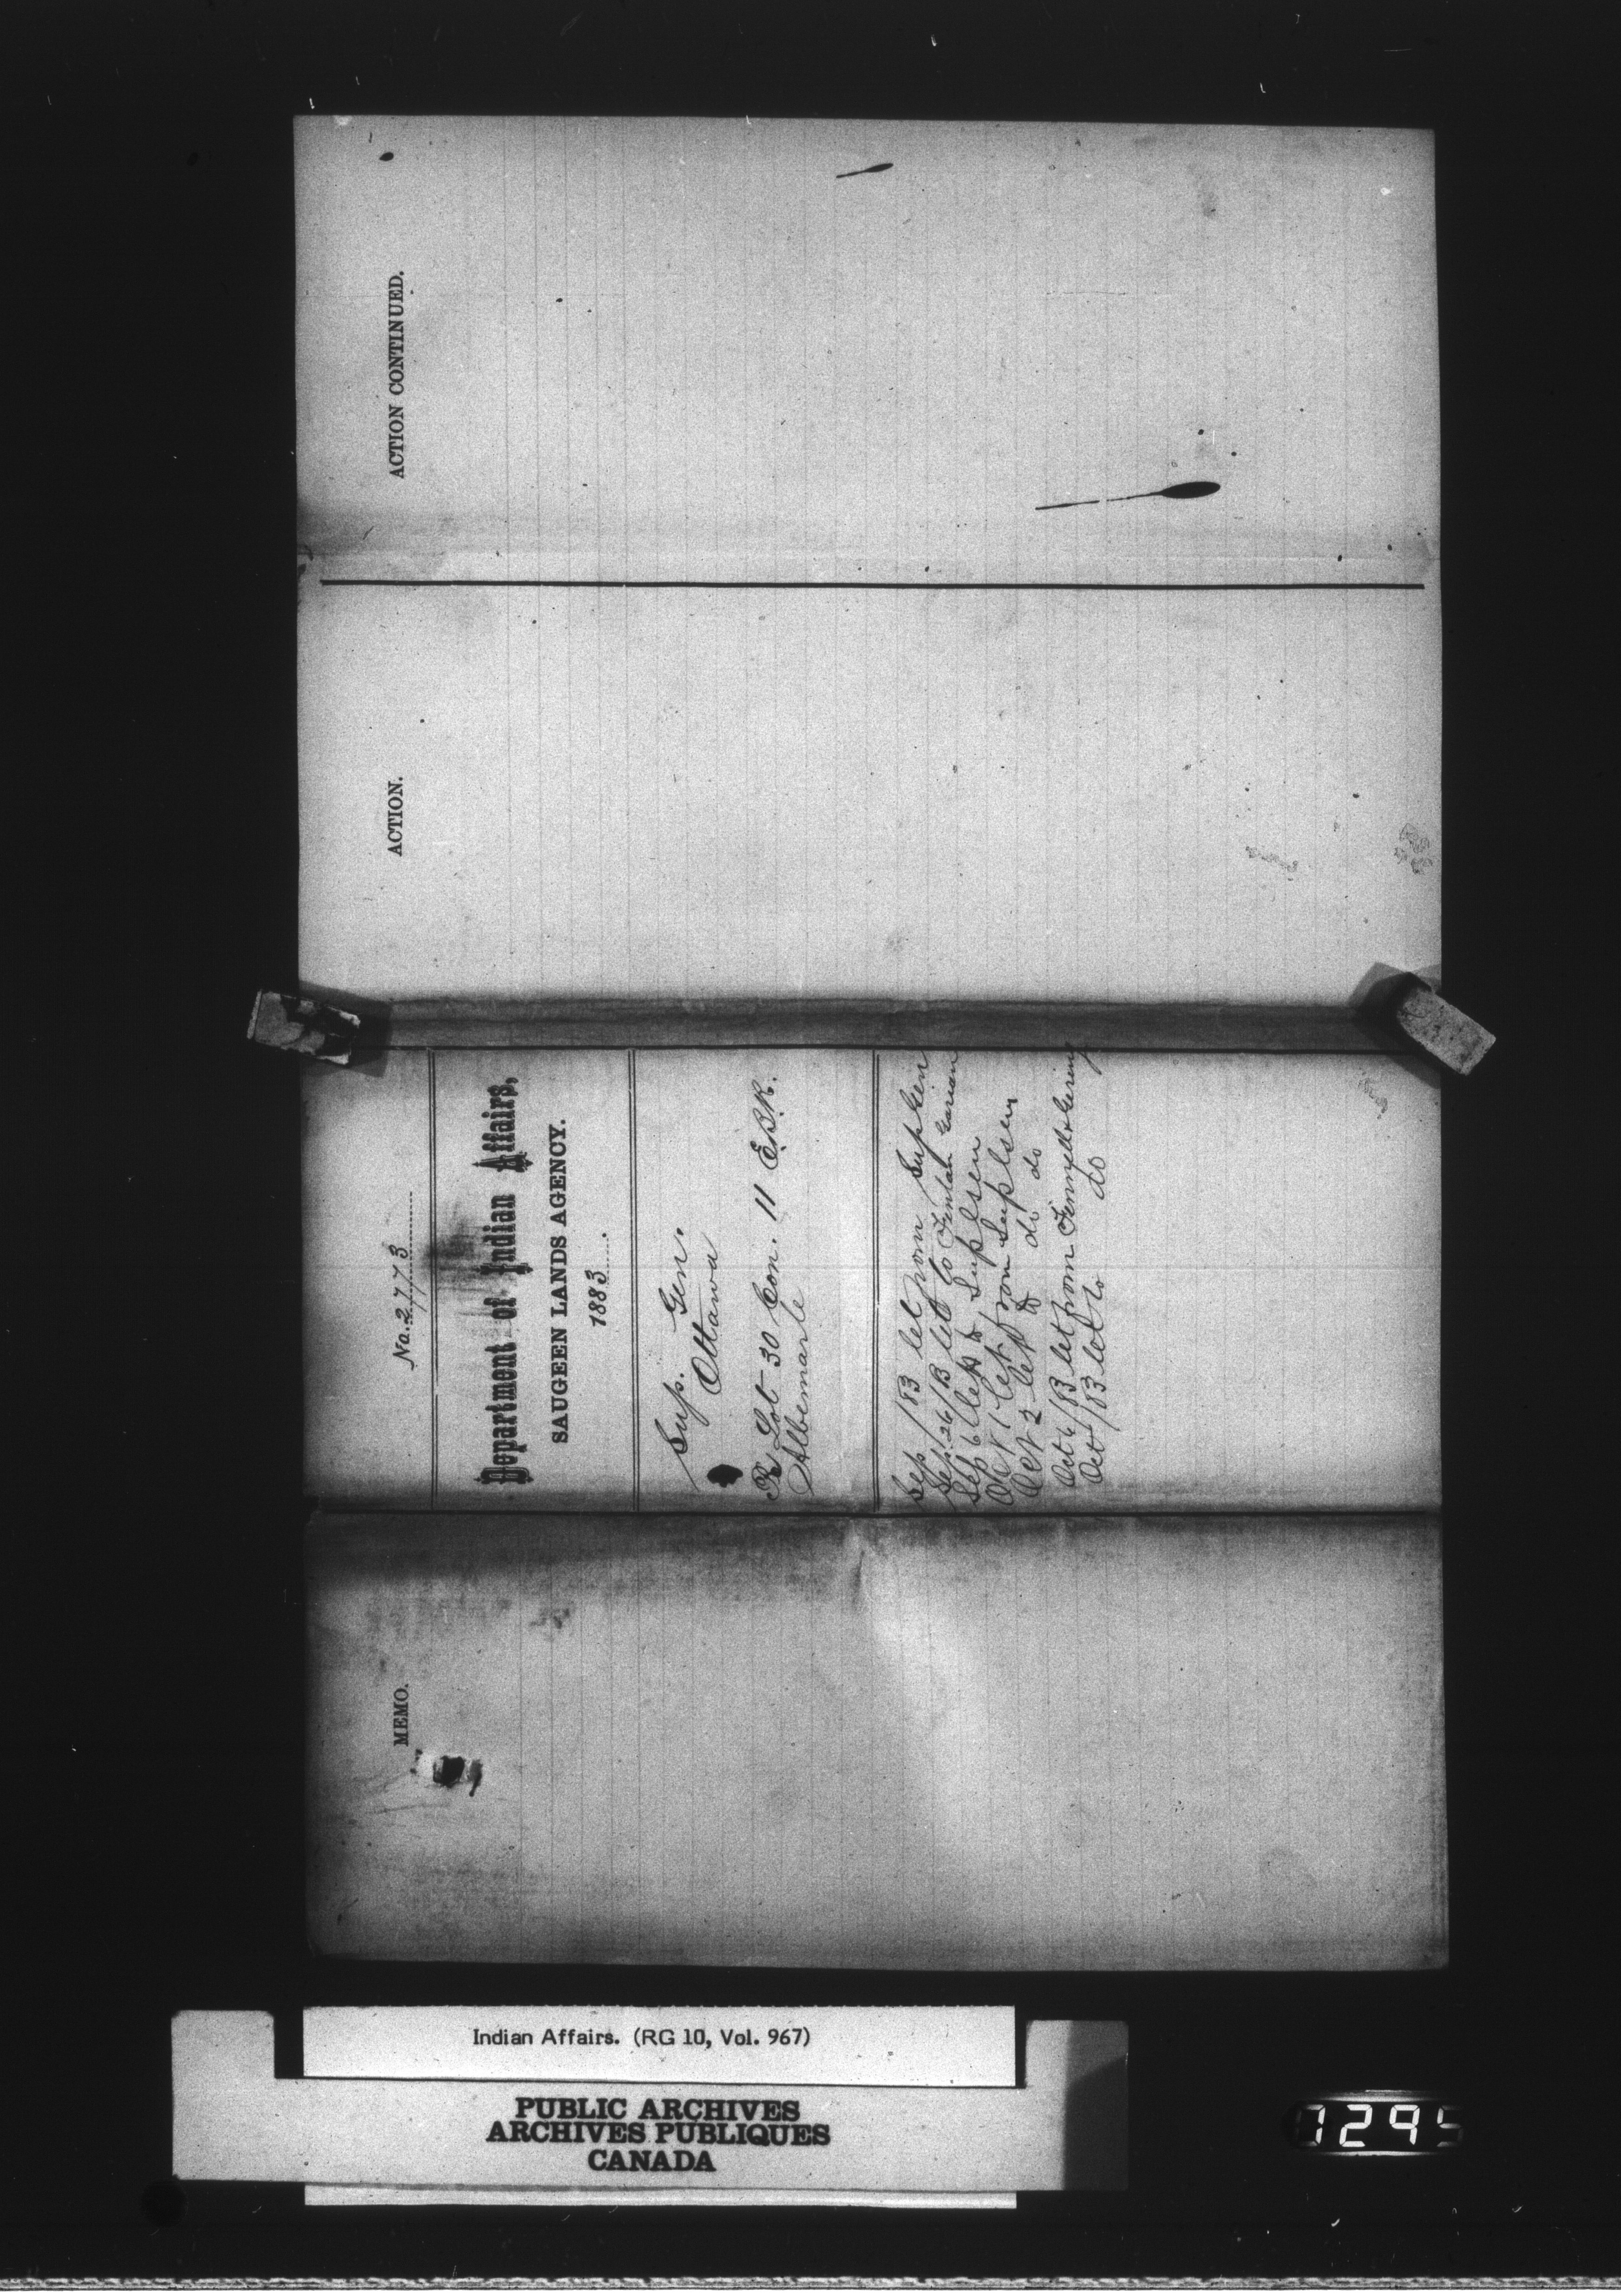 ACTION CONTINUED.
ACTION.
No. 2773
Department of Indian Affairs,
SAUGEEN LANDS AGENCY.
1883.
Sup. Gen.
Ottawa
Re Lot 30 Con. 11 E.B.R.
Albemarle
Sep / 83 let from Sup Gen
Sep 26 / 83 let to
Sep let to Sup Gen
Oct 1 let from Sup Gen
Oct 2 let to do do
Oct 6 / 83 let from
Oct / 83 let to do
MEMO.
Indian Affairs. (RG 10, Vol. 967)
PUBLIC ARCHIVES
ARCHIVES PUBLIQUES
CANADA
1295